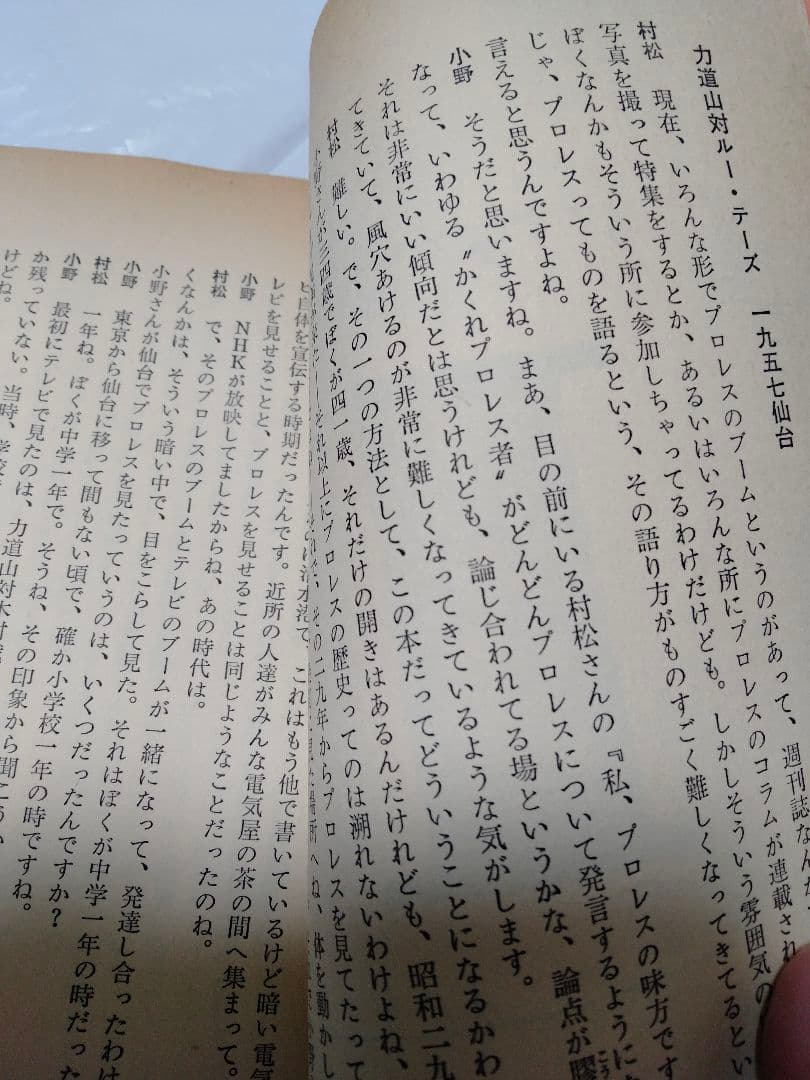 力道山対ルー・テーズ　一九五七仙台
村松　現在、いろんな形でプロレスのブームというのがあって、週刊誌なんか
写真を撮って特集をするとか、あるいはいろんな所にプロレスのコラムが連載され
ぼくなんかもそういう所に参加しちゃってるわけだけども。しかしそういう雰囲気の
じゃ、プロレスってものを語るという、その語り方がものすごく難しくなってきてるとい
言えると思うんですよね。
小野　そうだと思いますね。まあ、目の前にいる村松さんの『私、プロレスの味方です
なって、いわゆる〝かくれプロレス者〟がどんどんプロレスについて発言するように
それは非常にいい傾向だとは思うけれども、論じ合われてる場というかな、論点が膠
てきていて、風穴あけるのが非常に難しくなってきているような気がします。
村松　難しい。で、その一つの方法として、この本だってどういうことになるかわ
小野さんが三四歳でぼくが四一歳、それだけの開きはあるんだけれども、昭和二九
それ以上にプロレスの歴史ってのは溯れないわけよね、
その二九年からプロレスを見てたって
ビ自体を宣伝する時期だったんです。近所の人達がみんな電気屋の茶の間へ集まって。
レビを見せることと、プロレスを見せることは同じようなことだったのね。
小野　NHKが放映してましたからね、あの時代は。
村松　で、そのプロレスのブームとテレビのブームが一緒になって、発達し合ったわけ
くなんかは、そういう暗い中で、目をこらして見た。それはぼくが中学一年の時だった
小野さんが仙台でプロレスを見たっていうのは、いくつだったんですか？
小野　東京から仙台に移って間もない頃で、確か小学校一年の時ですね。
村松　一年ね。ぼくが中学一年で。そうね、その印象から聞こうか
小野　最初にテレビで見たのは、力道山対木村
か残っていない。当時、学校
けどね。